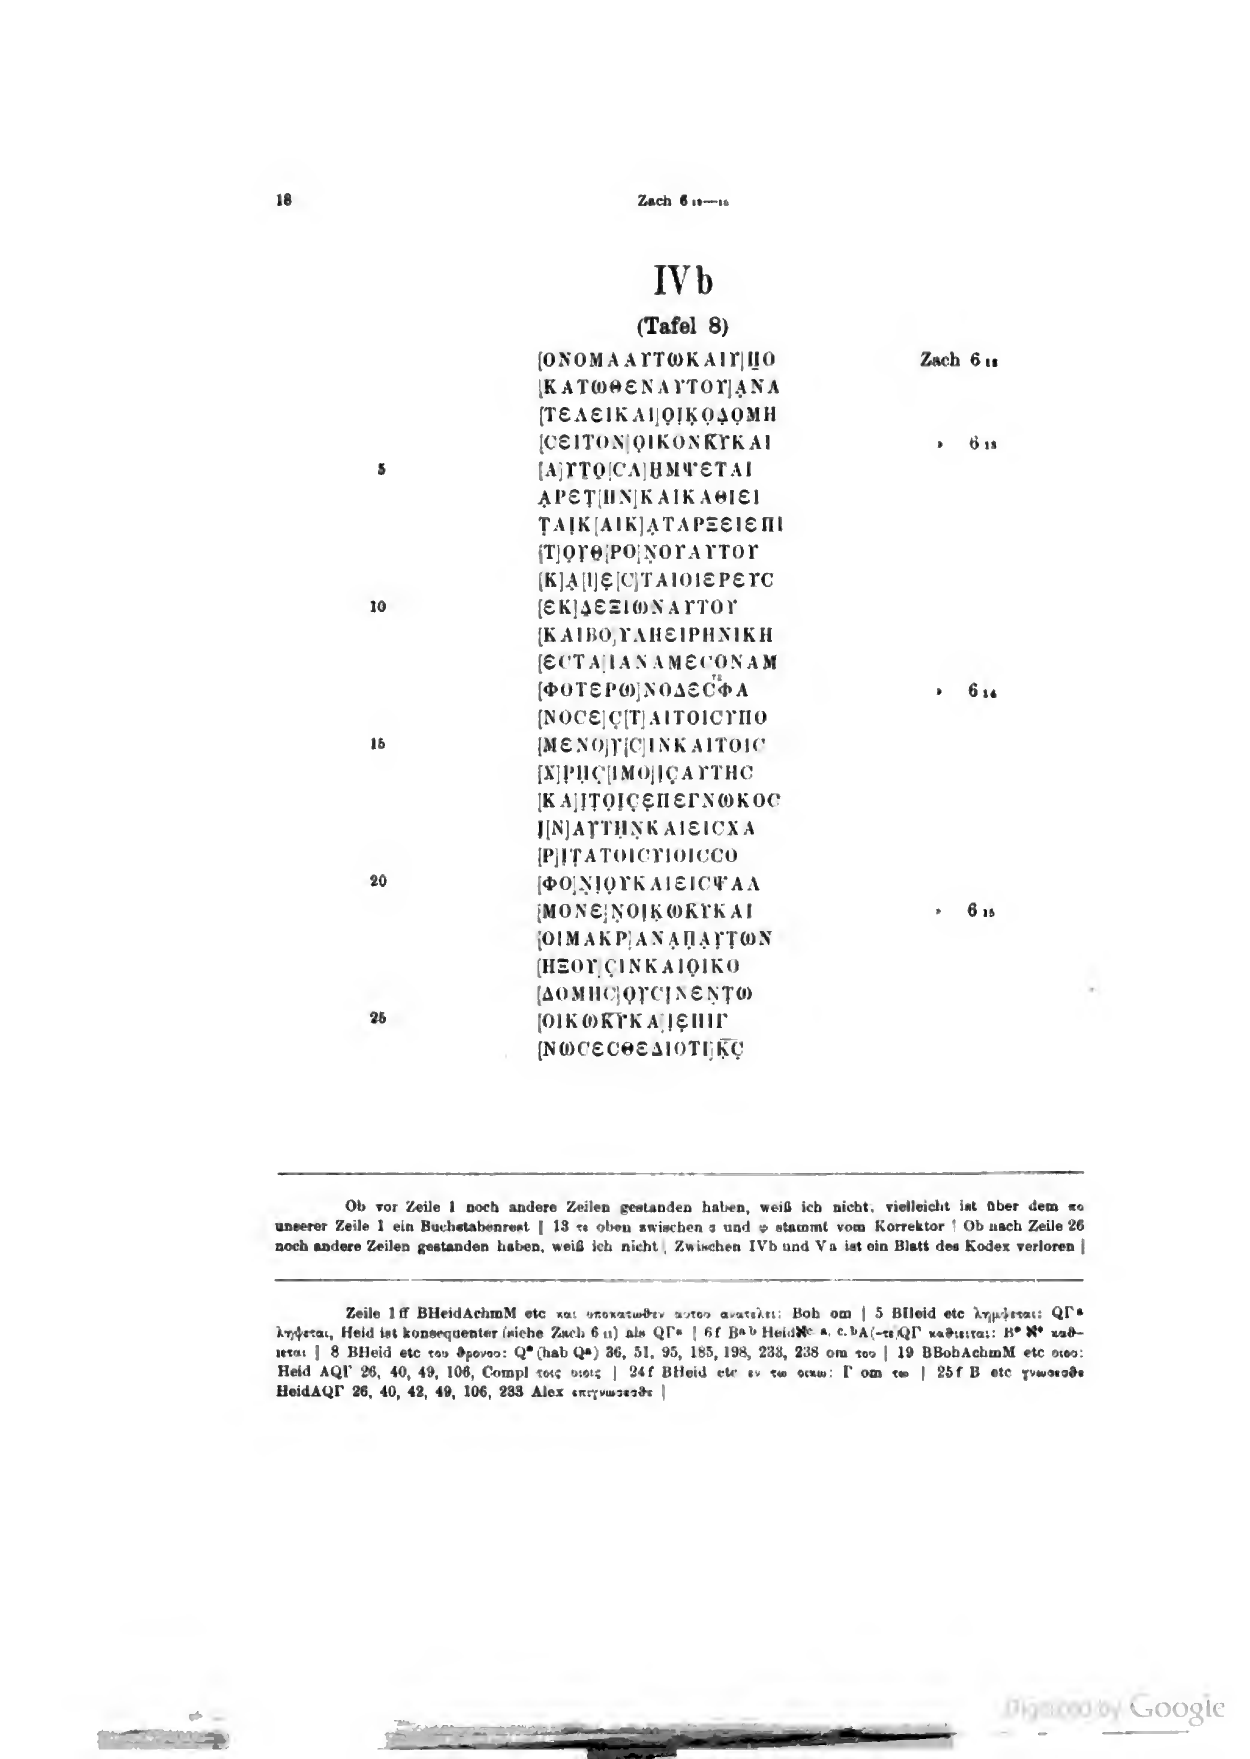 18 Zach 6 12—15
IVb
(Tafel 8)
[ΟΝΟΜΑΑΥΤΩΚΑΙΥ]Π̣Ο Zach 6 12
[ΚΑΤΩΘΕΝΑΥΤΟΥ]Α̣ΝΑ
[ΤΕΛΕΙΚΑΙ]Ο̣Ι̣Κ̣Ο̣Δ̣Ο̣ΜΗ
[ϹΕΙΤΟΝ]Ο̣ΙΚΟΝΚ̅Υ̅ΚΑΙ » 6 13
5 [Α]Υ̣ΤΟ̣[ϹΛ]Η̣ΜΨΕΤΑΙ
Α̣ΡΕΤ̣[ΗΝ]ΚΑΙΚΑΘΙΕΙ
Τ̣ΑΙ̣Κ[ΑΙΚ]Α̣ΤΑΡΞΕΙΕΠΙ
[Τ]Ο̣Υ̣Θ̣[ΡΟ]Ν̣ΟΥΑΥΤΟΥ
[Κ]Α̣[Ι]Ε̣[Ϲ]ΤΑΙΟΙΕΡΕΥϹ
10 [ΕΚ]Δ̣ΕΞΙΩΝΑΥΤΟΥ
[ΚΑΙΒΟ]ΥΛΗΕΙΡΗΝΙΚΗ
[ΕϹΤΑ]ΙΑΝΑΜΕϹΟΝΑΜ
τε
[ΦΟΤΕΡΩ]ΝΟΔΕϹΦΑ » 6 14
[ΝΟϹΕ]Ϲ̣[Τ]ΑΙΤΟΙϹΥΠΟ
15 [ΜΕΝΟ]Υ̣[Ϲ]ΙΝΚΑΙΤΟΙϹ
[Χ]Ρ̣Η̣Ϲ̣[ΙΜΟ]Ι̣Ϲ̣ΑΥΤΗϹ
[ΚΑ]Ι̣Τ̣Ο̣Ι̣Ϲ̣Ε̣ΠΕΓΝΩΚΟϹ
Ι̣[Ν]ΑΥ̣ΤΗ̣Ν̣ΚΑΙΕΙϹΧΑ
[Ρ]Ι̣Τ̣ΑΤΟΙϹΥΙΟΙϹϹΟ
20 [ΦΟ]Ν̣Ι̣Ο̣ΥΚΑΙΕΙϹΨΑΛ
[ΜΟΝΕ]Ν̣ΟΙ̣Κ̣ΩΚ̅Υ̅ΚΑΙ » 6 15
[ΟΙΜΑΚΡ]ΑΝΑ̣Π̣Α̣Υ̣Τ̣ΩΝ
[ΗΞΟΥ]Ϲ̣ΙΝΚΑΙΟ̣ΙΚΟ
[ΔΟΜΗϹ]Ο̣Υ̣ϹΙ̣ΝΕΝ̣Τ̣Ω
25 [ΟΙΚΩΚ̅Υ̅ΚΑ]Ι̣Ε̣ΠΙΓ
[ΝΩϹΕϹΘΕΔΙΟΤΙ]Κ̣̅Ϲ̣̅
Ob vor Zeile 1 noch andere Zeilen gestanden haben, weiß ich nicht, vielleicht ist über dem πο
unserer Zeile 1 ein Buchstabenrest | 13 τε oben zwischen σ und φ stammt vom Korrektor | Ob nach Zeile 26
noch andere Zeilen gestanden haben, weiß ich nicht | Zwischen IVb und Va ist ein Blatt des Kodex verloren |
Zeile 1 ff BHeidAchmM etc και υποκατωθεν αυτου ανατελει: Boh om | 5 BHeid etc λημψεται: QΓa
ληψεται, Heid ist konsequenter (siehe Zach 6 11) als QΓa | 6f Bab Heidℵc.a, c.bA(-τε)QΓ καθιειται: B* ℵ* καθ-
ιεται | 8 BHeid etc του θρονου: Q*(hab Qa) 36, 51, 95, 185, 198, 233, 238 om του | 19 BBohAchmM etc οιου:
Heid AQΓ 26, 40, 49, 106, Compl τοις υιοις | 24f BHeid etc εν τω οικω: Γ om τω | 25f B etc γνωσεσθε
HeidAQΓ 26, 40, 42, 49, 106, 233 Alex επιγνωσεσθε |
Digitized by Google